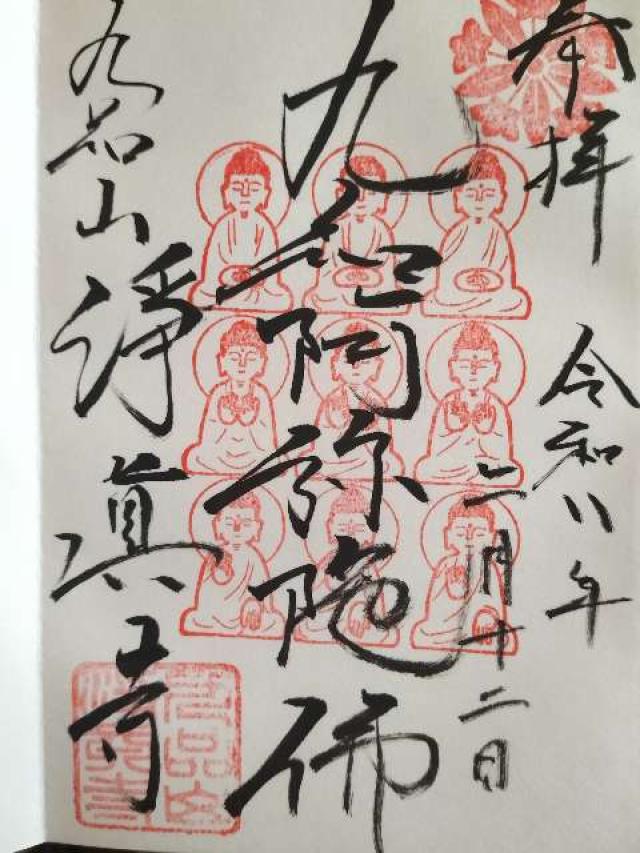 奉拝
令和八年
二月十二日
九品阿弥陀佛
九品山
淨眞寺